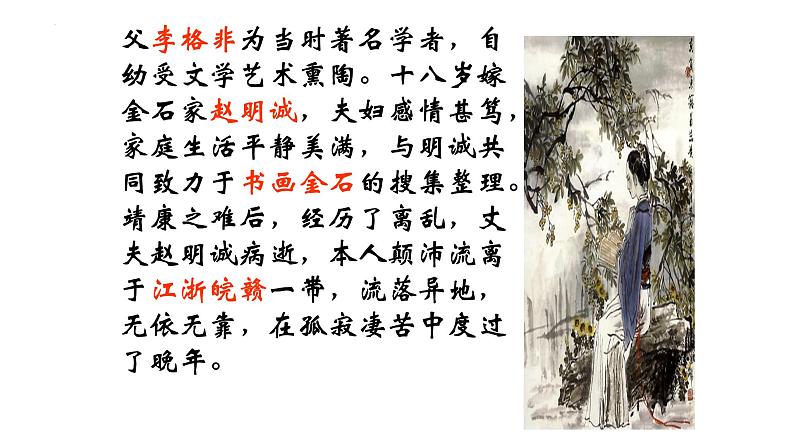 父李格非为当时著名学者，自
幼受文学艺术熏陶。十八岁嫁
金石家赵明诚，夫妇感情甚笃，
家庭生活平静美满，与明诚共
同致力于书画金石的搜集整理。
靖康之难后，经历了离乱，丈
夫赵明诚病逝，本人颠沛流离
于江浙皖赣一带，流落异地，
无依无靠，在孤寂凄苦中度过
了晚年。